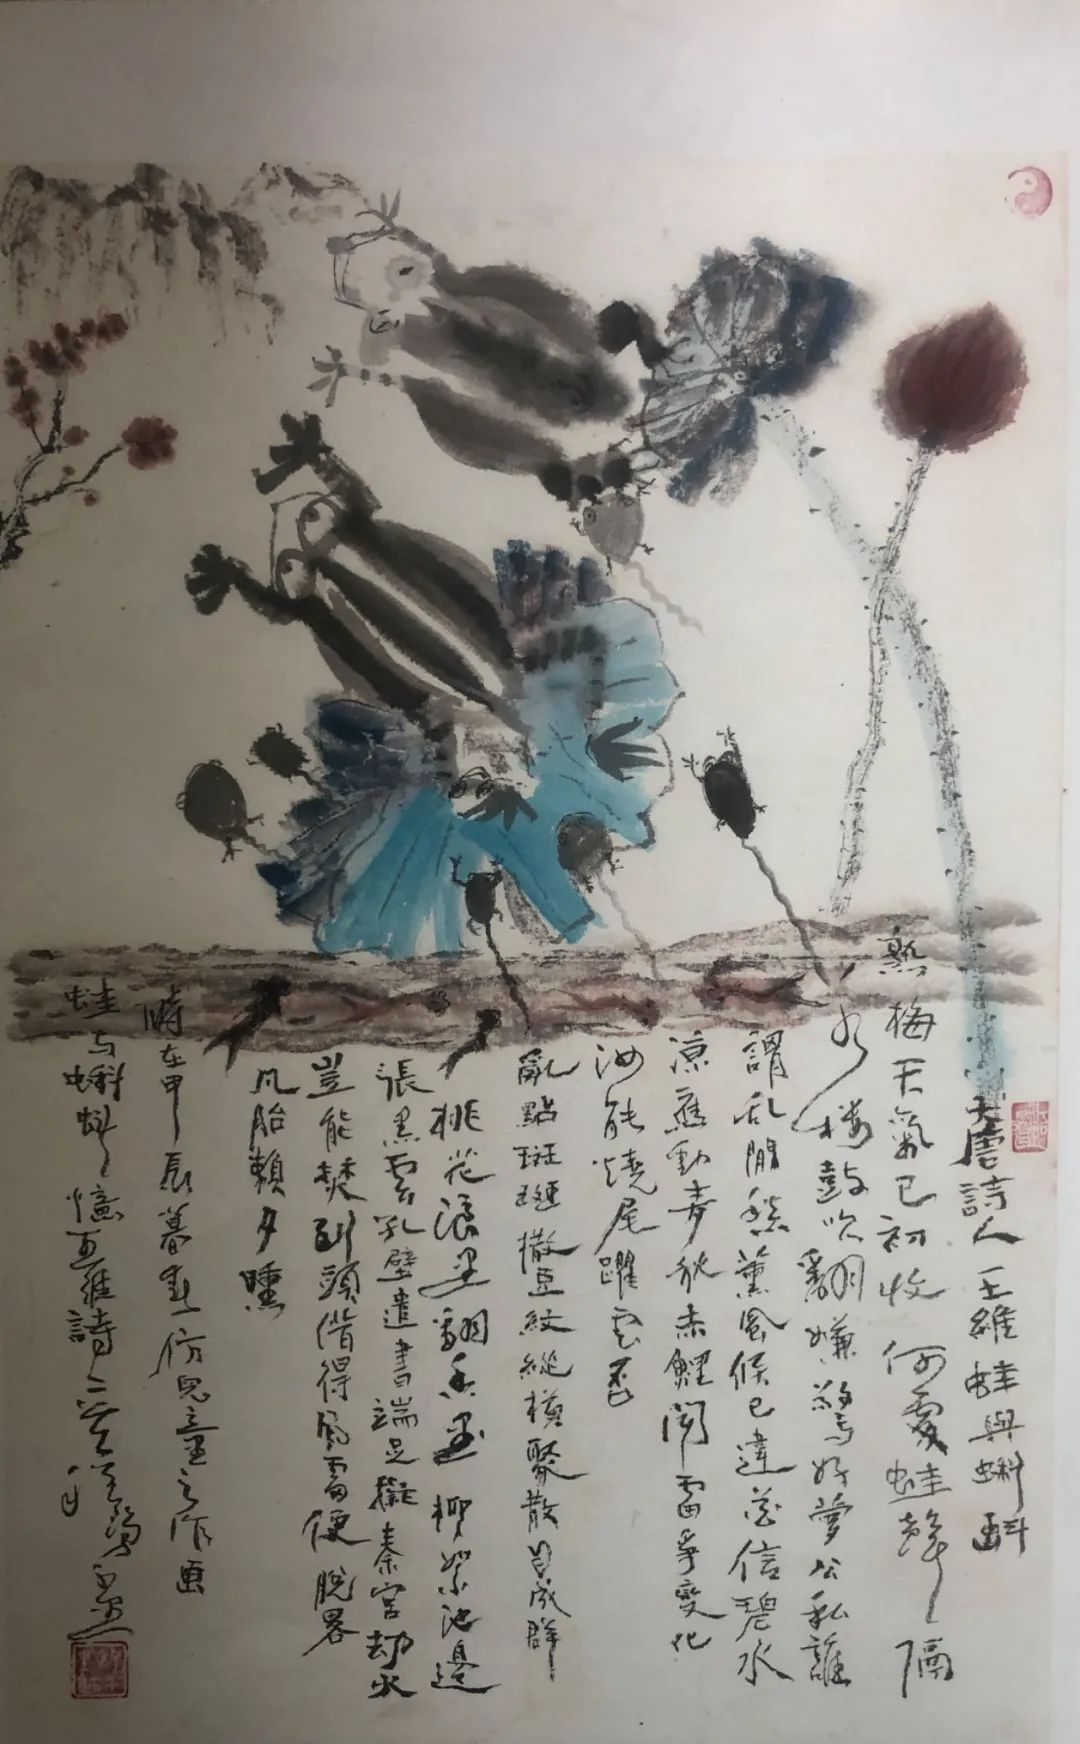 大唐詩人王維蛙與蝌蚪
熟梅天氣已初收 何處蛙聲隔
水樓鼓吹翻嫌驚好夢公私誰
謂乱閒愁薰風候已違芒信碧水
涼應動麥秋赤鯉聞雷爭變化
汝能燒尾躍雲否
亂點斑斑撒豆紋縱橫聚散自成群
桃花浪里翻香墨柳絮池邊
張黑雲孔壁遺書端是擬秦宮劫火
豈能焚到頭借得風雷便脫畧
凡胎賴夕曛
時在甲辰暮春仿兒童之作画
蛙与蝌蚪憶王維詩